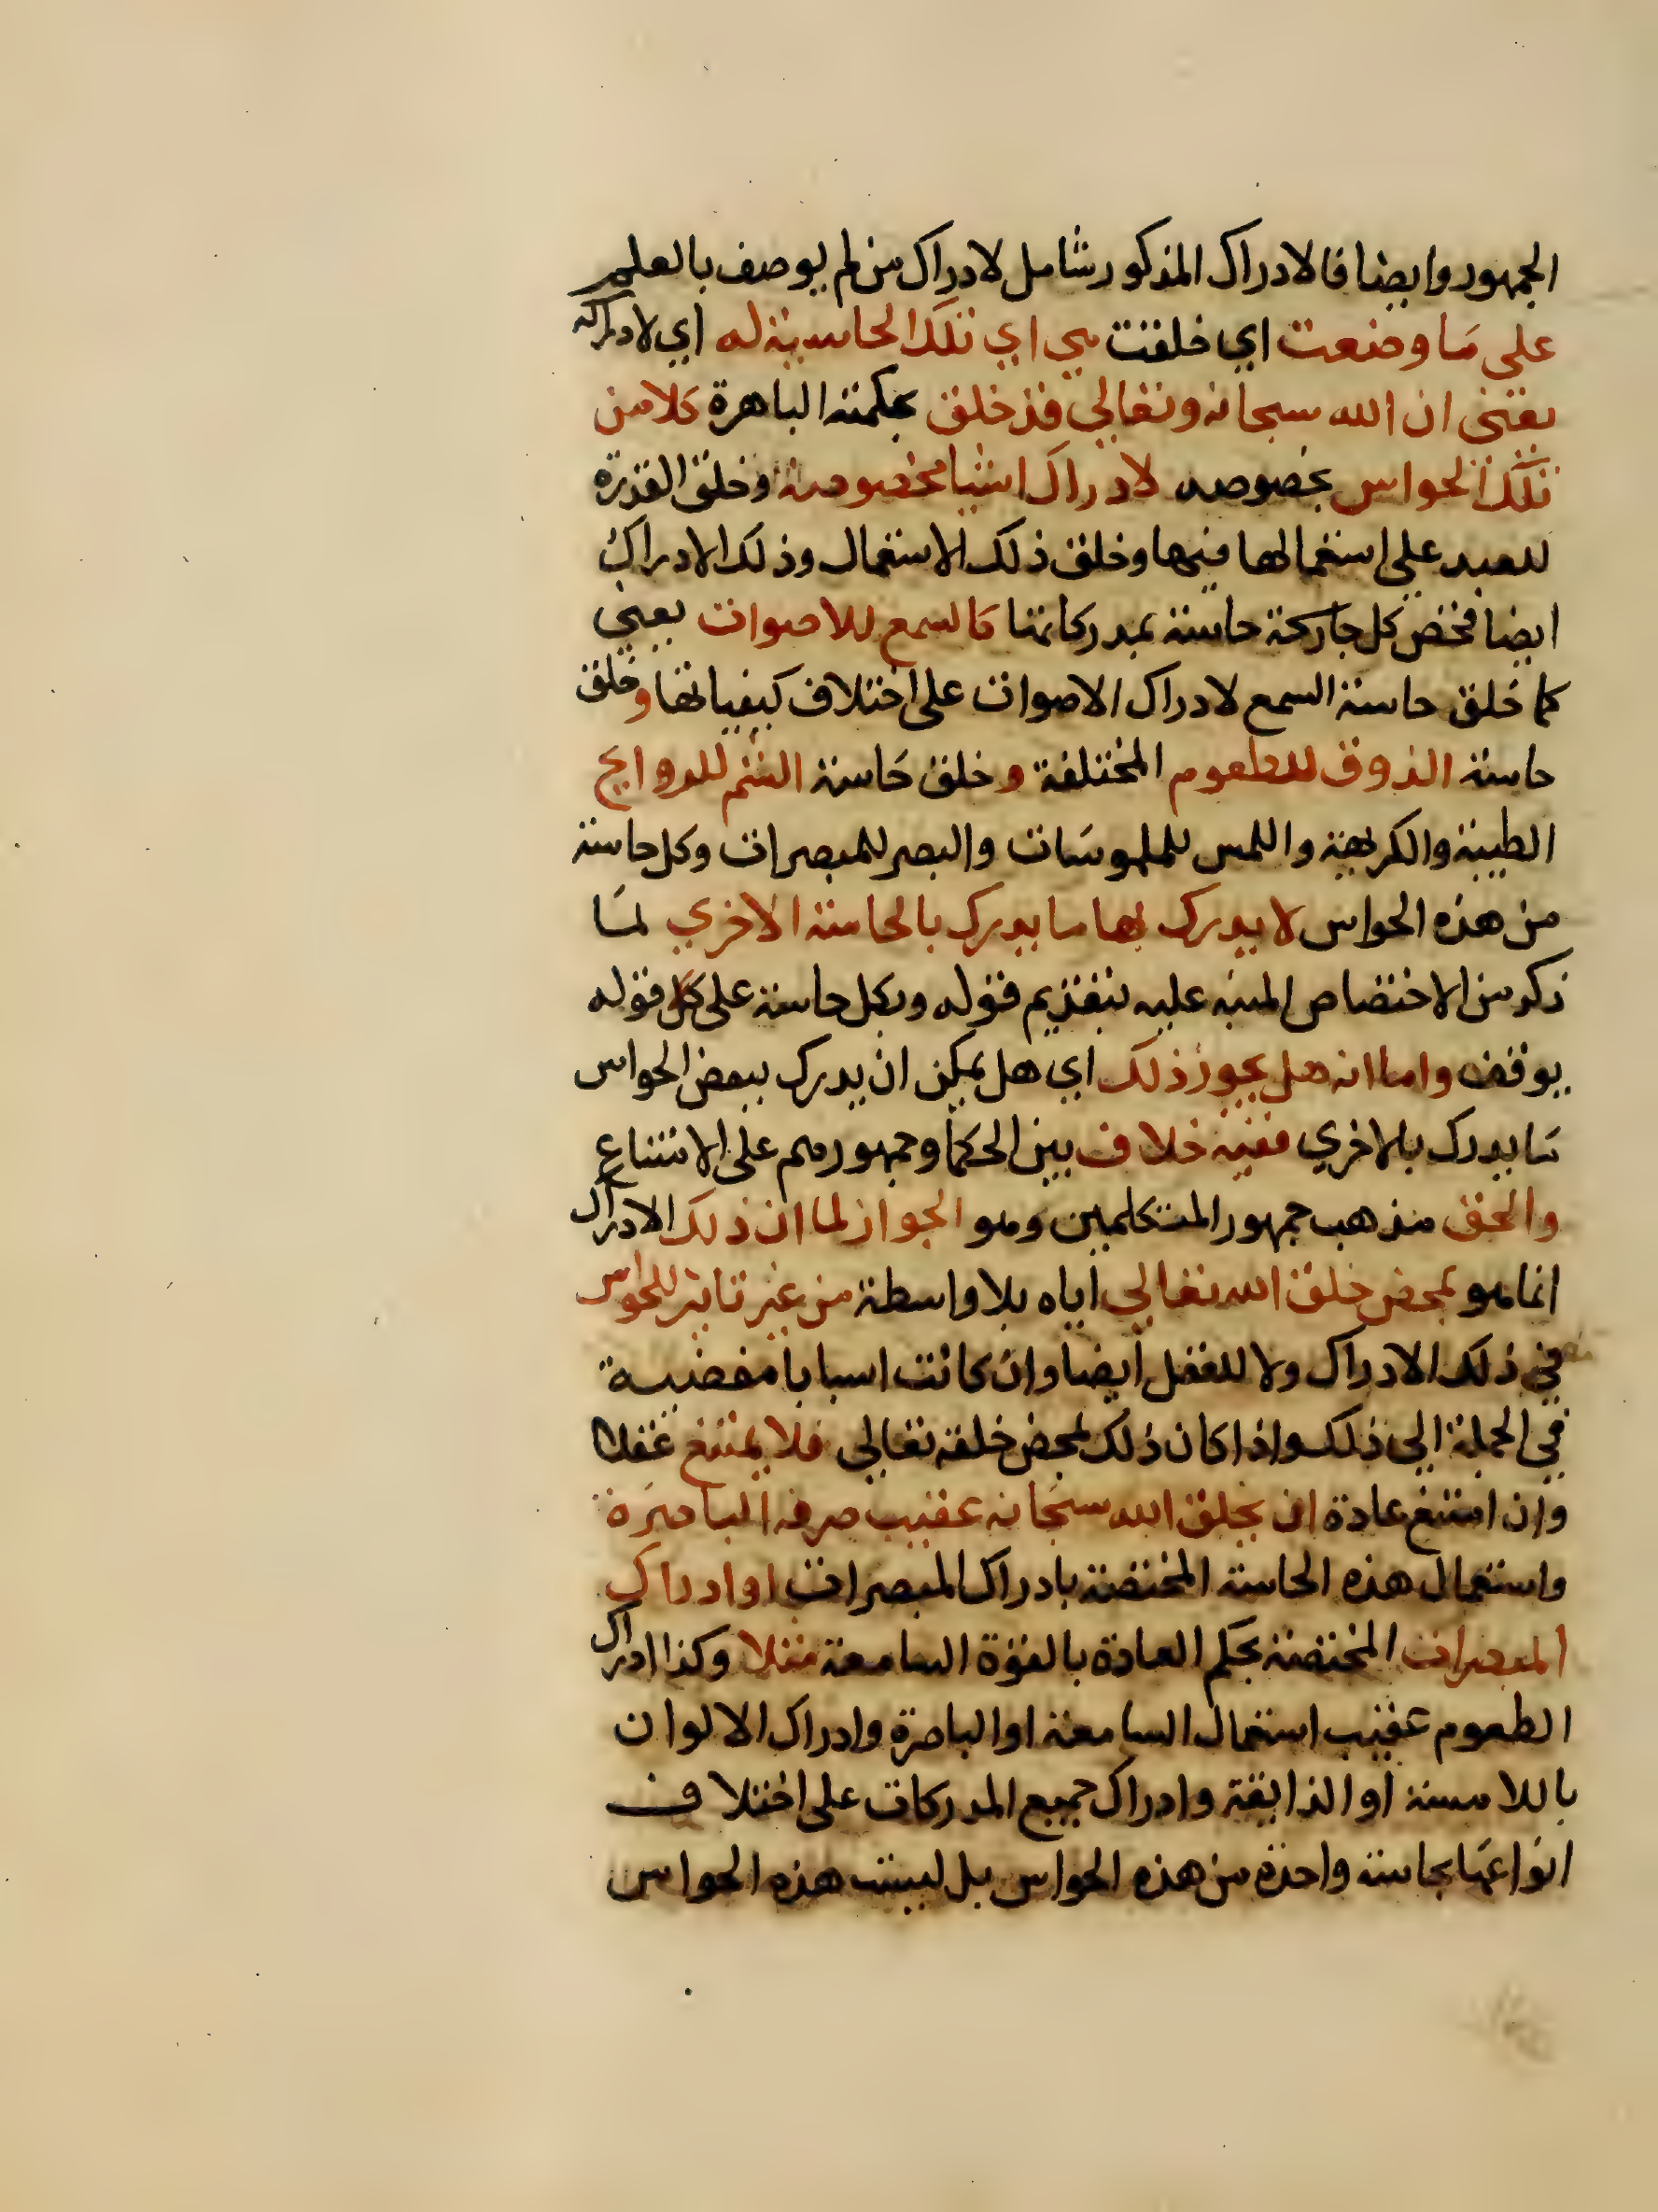 الجمهور وايضا فالادراك المذكور شامل لادراك من لم يوصف بالعلم
على ما وضعت اي خلقت هي اي تلك الحاسية له اي لادراكه
يعني ان الله سبحانه وتعالي قد خلق بحكمته الباهرة كلا من
تلك الحواس بخصوصه لادراك اشيا مخصوصة وخلق القدرة
للعبد على استعمالها فيها وخلق ذلك الاستعمال وذلك الادراك
ايضا فخص كل جارحة حاسة بمدركاتها كالسمع للاصوات يعني
كما خلق حاسة السمع لادراك الاصوات على اختلاف كيفياتها وخلق
حاسة الذوق للطعوم المختلفة وخلق حاسة الشم للروايح
الطيبة والكريهة واللمس للملموسات والبصر للمبصرات وكل حاسة
من هذه الحواس لا يدرك بها ما يدرك بالحاسة الاخري لما
ذكر من الاختصاص المنبه عليه بتقديم قوله وبكل حاسة على كل قوله
يوقف واما انه هل يجوز ذلك اي هل يمكن ان يدرك ببعض الحواس
ما يدرك بالاخري ففيه خلاف بين الحكما وجمهورهم على الامتناع
والحق مذهب جمهور المتكلمين وهو الجواز لما ان ذلك الادراك
انما هو بمحض خلق الله تعالي اياه بلا واسطة من غير تاثير للحواس
في ذلك الادراك ولا للعقل ايضا وان كانت اسبابا مفضية
في الجملة الى ذلك واذا كان ذلك لمحض خلقه تعالى فلا يمتنع عقلا
وان امتنع عادة ان يخلق الله سبحانه عقيب صرف الباصرة
واستعمال هذه الحاسة المختصة بادراك المبصرات او ادراك
المبصرات المختصة بحكم العادة بالقوة السامعة مثلا وكذا ادراك
الطعوم عقيب استعمال السامعة او الباصرة وادراك الالوان
باللامسة او الذايقة وادراك جميع المدركات على اختلاف
انواعها بحاسة واحدة من هذه الحواس بل ليست هذه الحواس